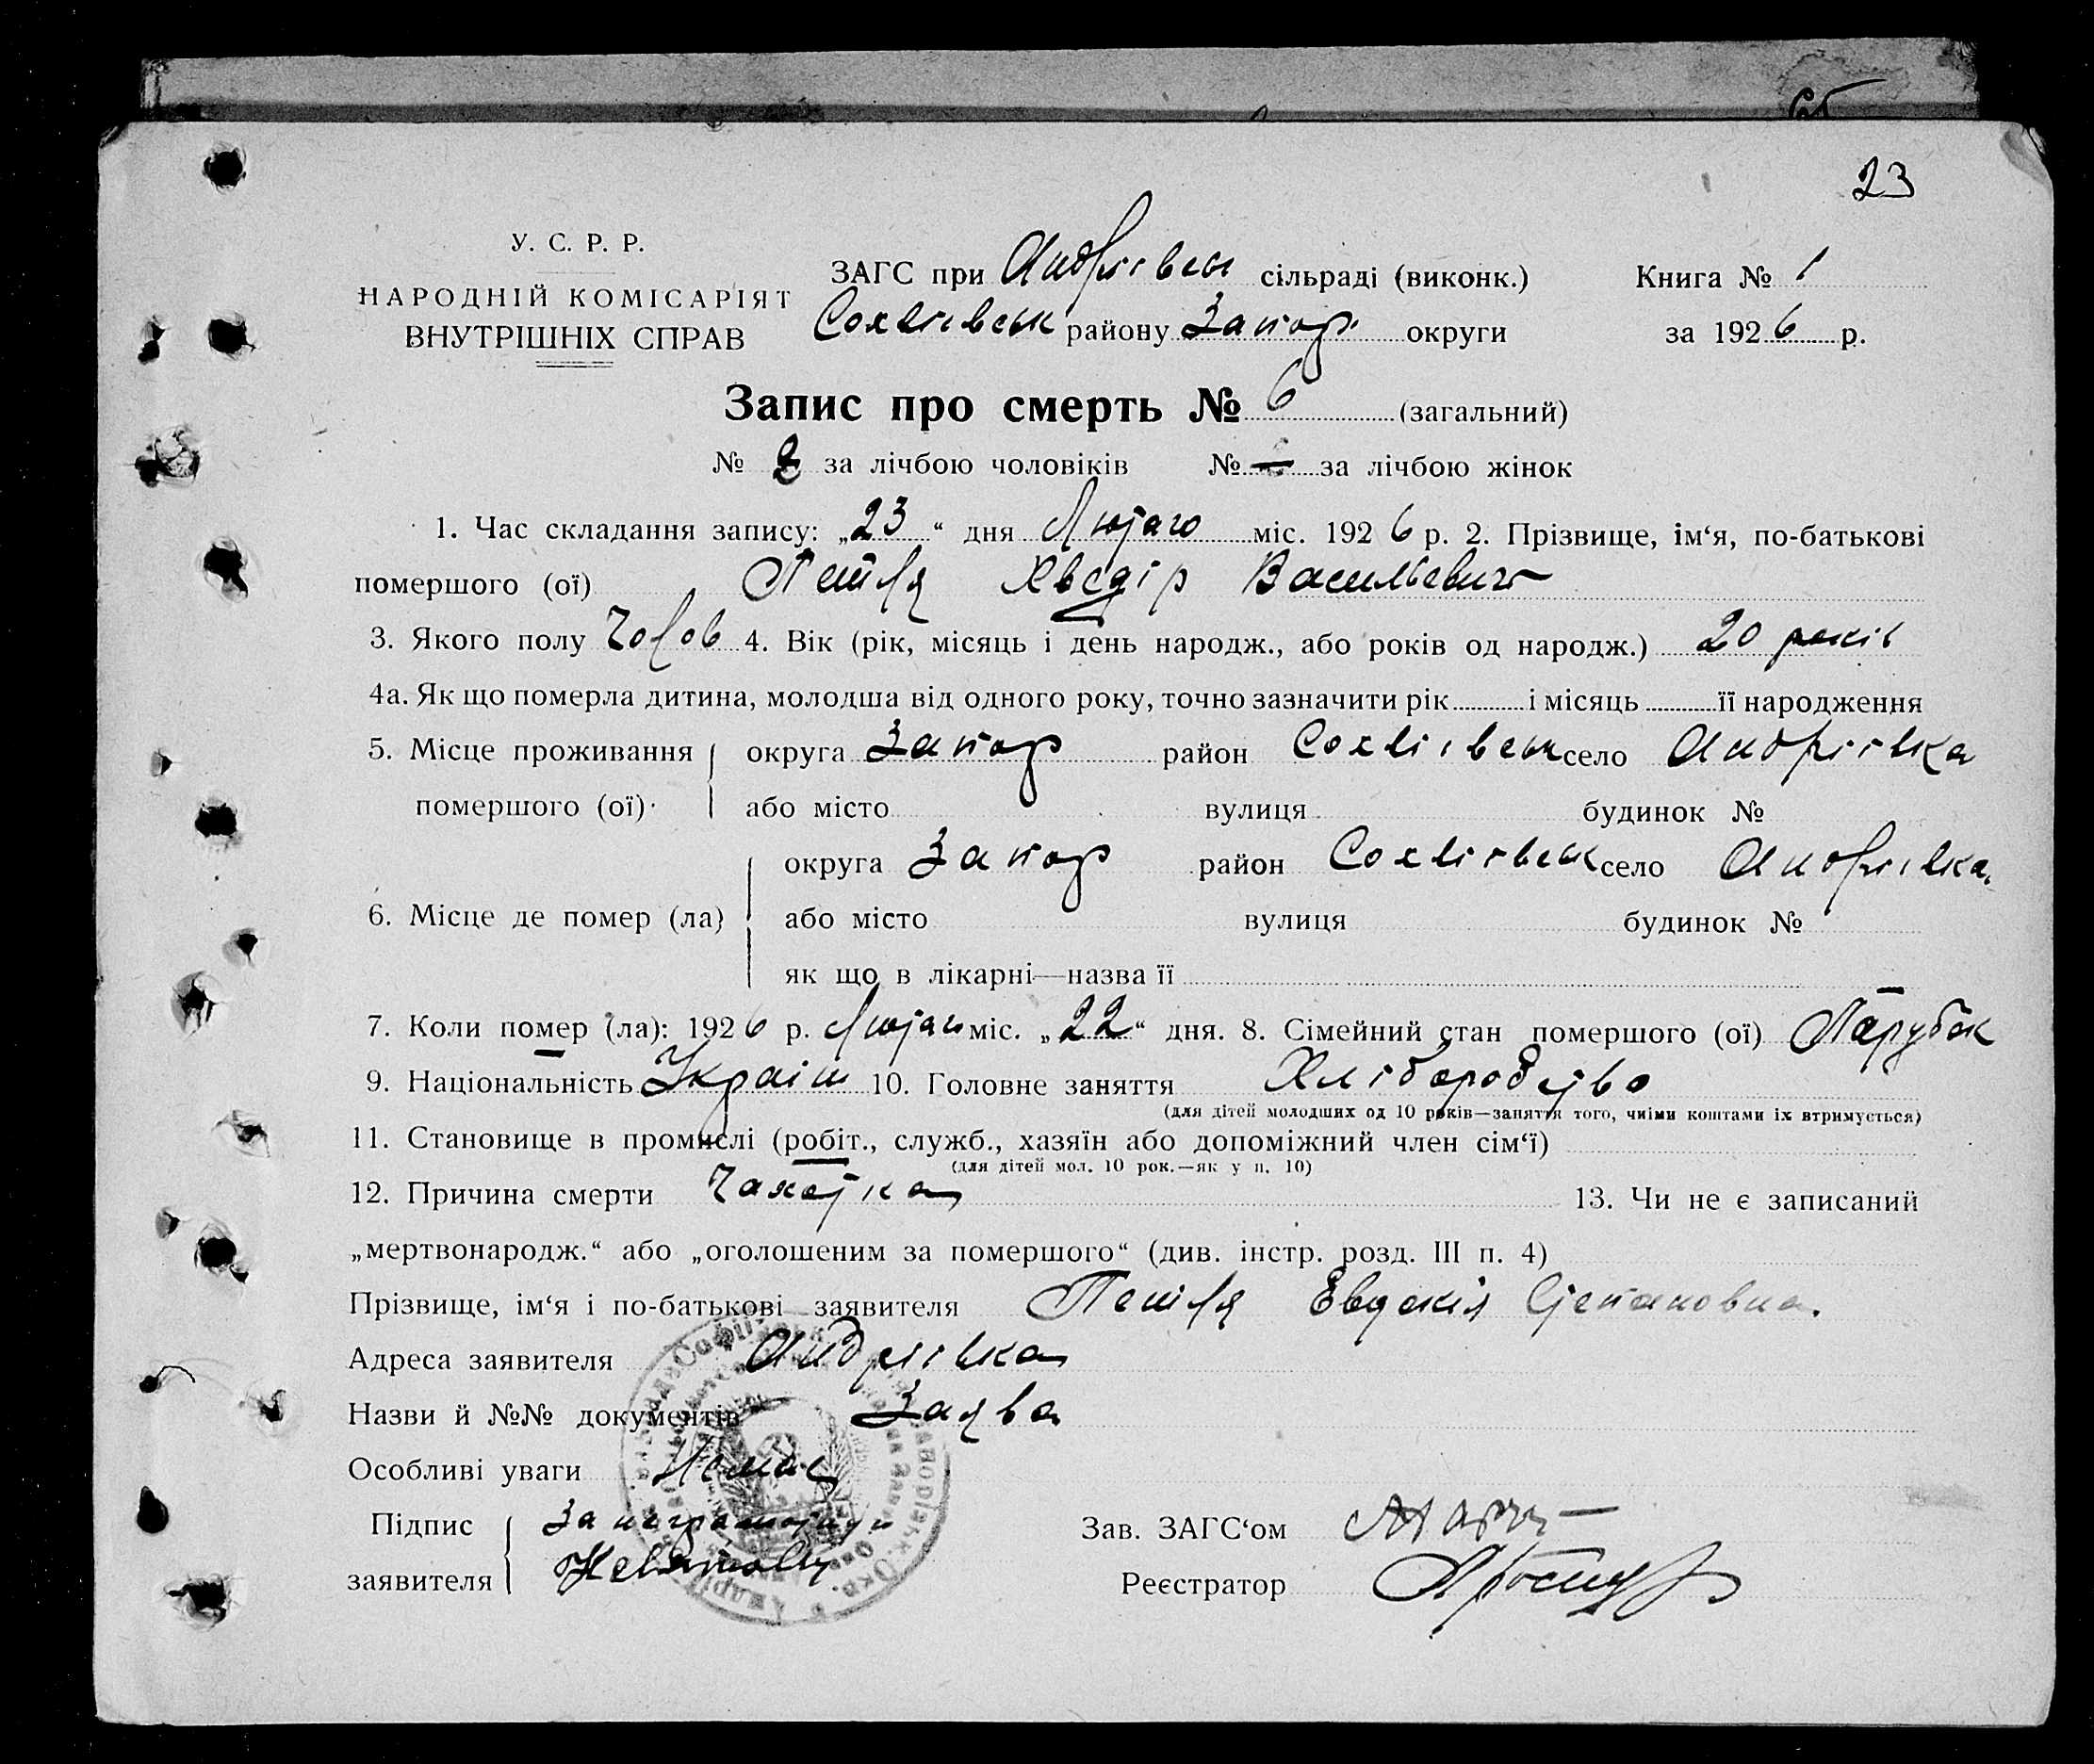 23
У. С. Р. Р.
НАРОДНІЙ КОМІСАРІЯТ
ВНУТРІШНІХ СПРАВ
ЗАГС при Андріівськ сільраді (виконк.) Книга № 1
району Запор. округи за 1926 р.
Запис про смерть № 6 (загальний)
№ 2 за лічбою чоловіків № — за лічбою жінок
1. Час складання запису: „23“ дня Лютаго міс. 1926 р. 2. Прізвище, ім‘я, по-батькові
помершого (ої) Хведір Васильевич
3. Якого полу Чолов 4. Вік (рік, місяць і день народж., або років од народж.) 20 років
4а. Як що померла дитина, молодша від одного року, точно зазначити рік і місяць її народження
5. Місце проживання округа Запор район село Андріівка
помершого (ої) або місто вулиця будинок №
округа Запор район село Андріівка.
6. Місце де помер (ла) або місто вулиця будинок №
як що в лікарні—назва її
7. Коли помер (ла): 1926 р. Лютаго міс. „22“ дня. 8. Сімейний стан помершого (ої) Парубок
9. Національність Украін 10. Головне заняття Хліборобство
(для дітей молодших од 10 років—заняття того, чиїми коштами їх втримується)
11. Становище в промислі (робіт., служб., хазяїн або допоміжний член сім‘ї)
(для дітей мол. 10 рок.—як у п. 10)
12. Причина смерти Чахотка 13. Чи не є записаний
„мертвонародж.“ або „оголошеним за помершого“ (див. інстр. розд. III п. 4)
Прізвище, ім‘я і по-батькові заявителя Евдокія Степановна.
Адреса заявителя Андріівка
Назви й №№ документів Заява
Особливі уваги Немає
Підпис За неграмотную
заявителя
Зав. ЗАГС‘ом
Реєстратор